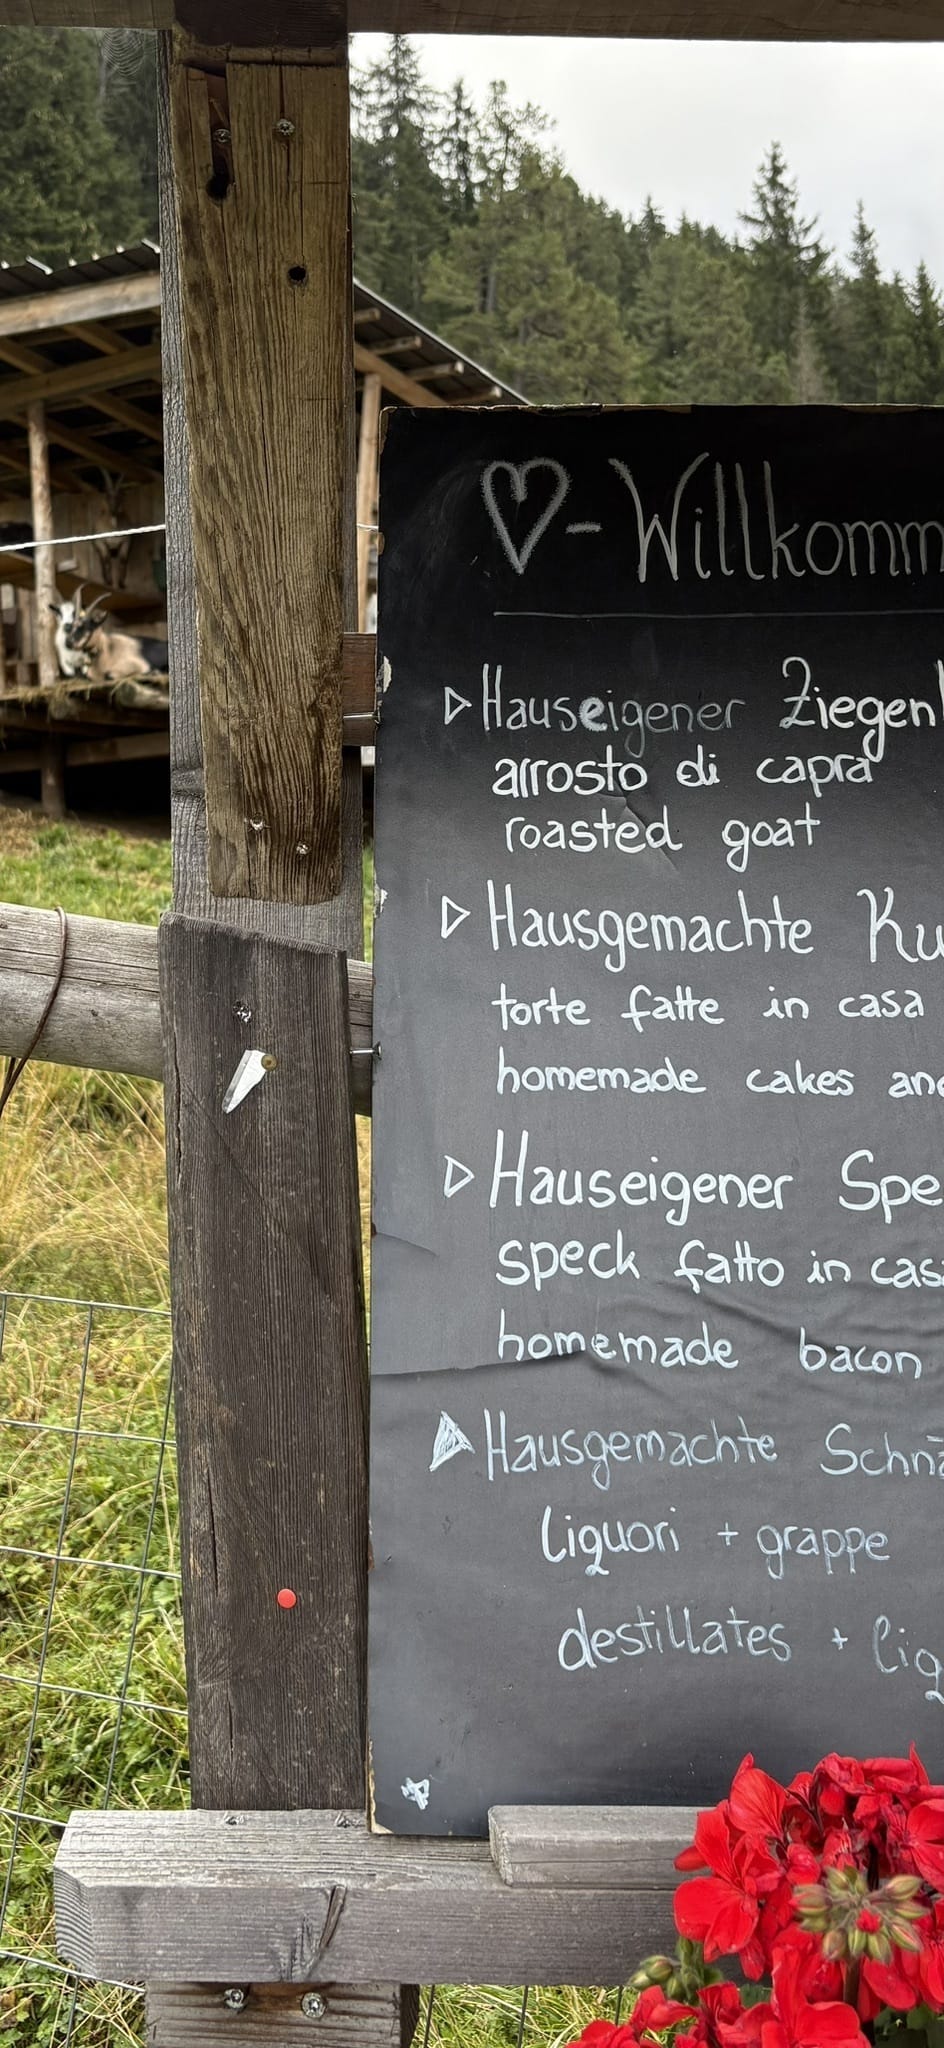 Willkomm
Hauseigener Ziegen
arrosto di capra
roasted goat
Hausgemachte Ku
torte fatte in casa
homemade cakes an
Hauseigener Spe
speck fatto in cas
homemade bacon
Hausgemachte Schnä
liquori + grappe
destillates + liq